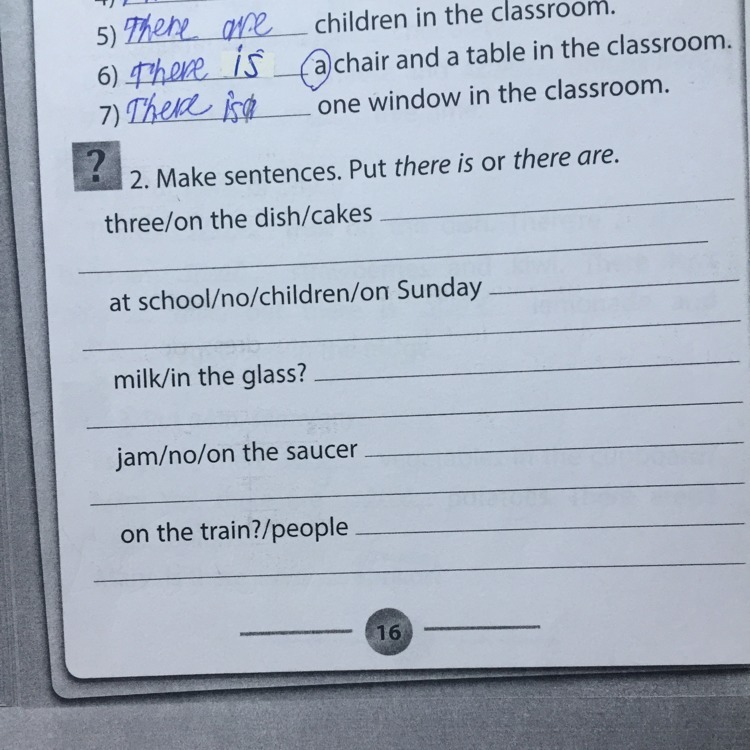 5) There are children in the classroom.
6) There is a chair and a table in the classroom.
7) There is one window in the classroom.
? 2. Make sentences. Put there is or there are.
three/on the dish/cakes
at school/no/children/on Sunday
milk/in the glass?
jam/no/on the saucer
on the train?/people
16